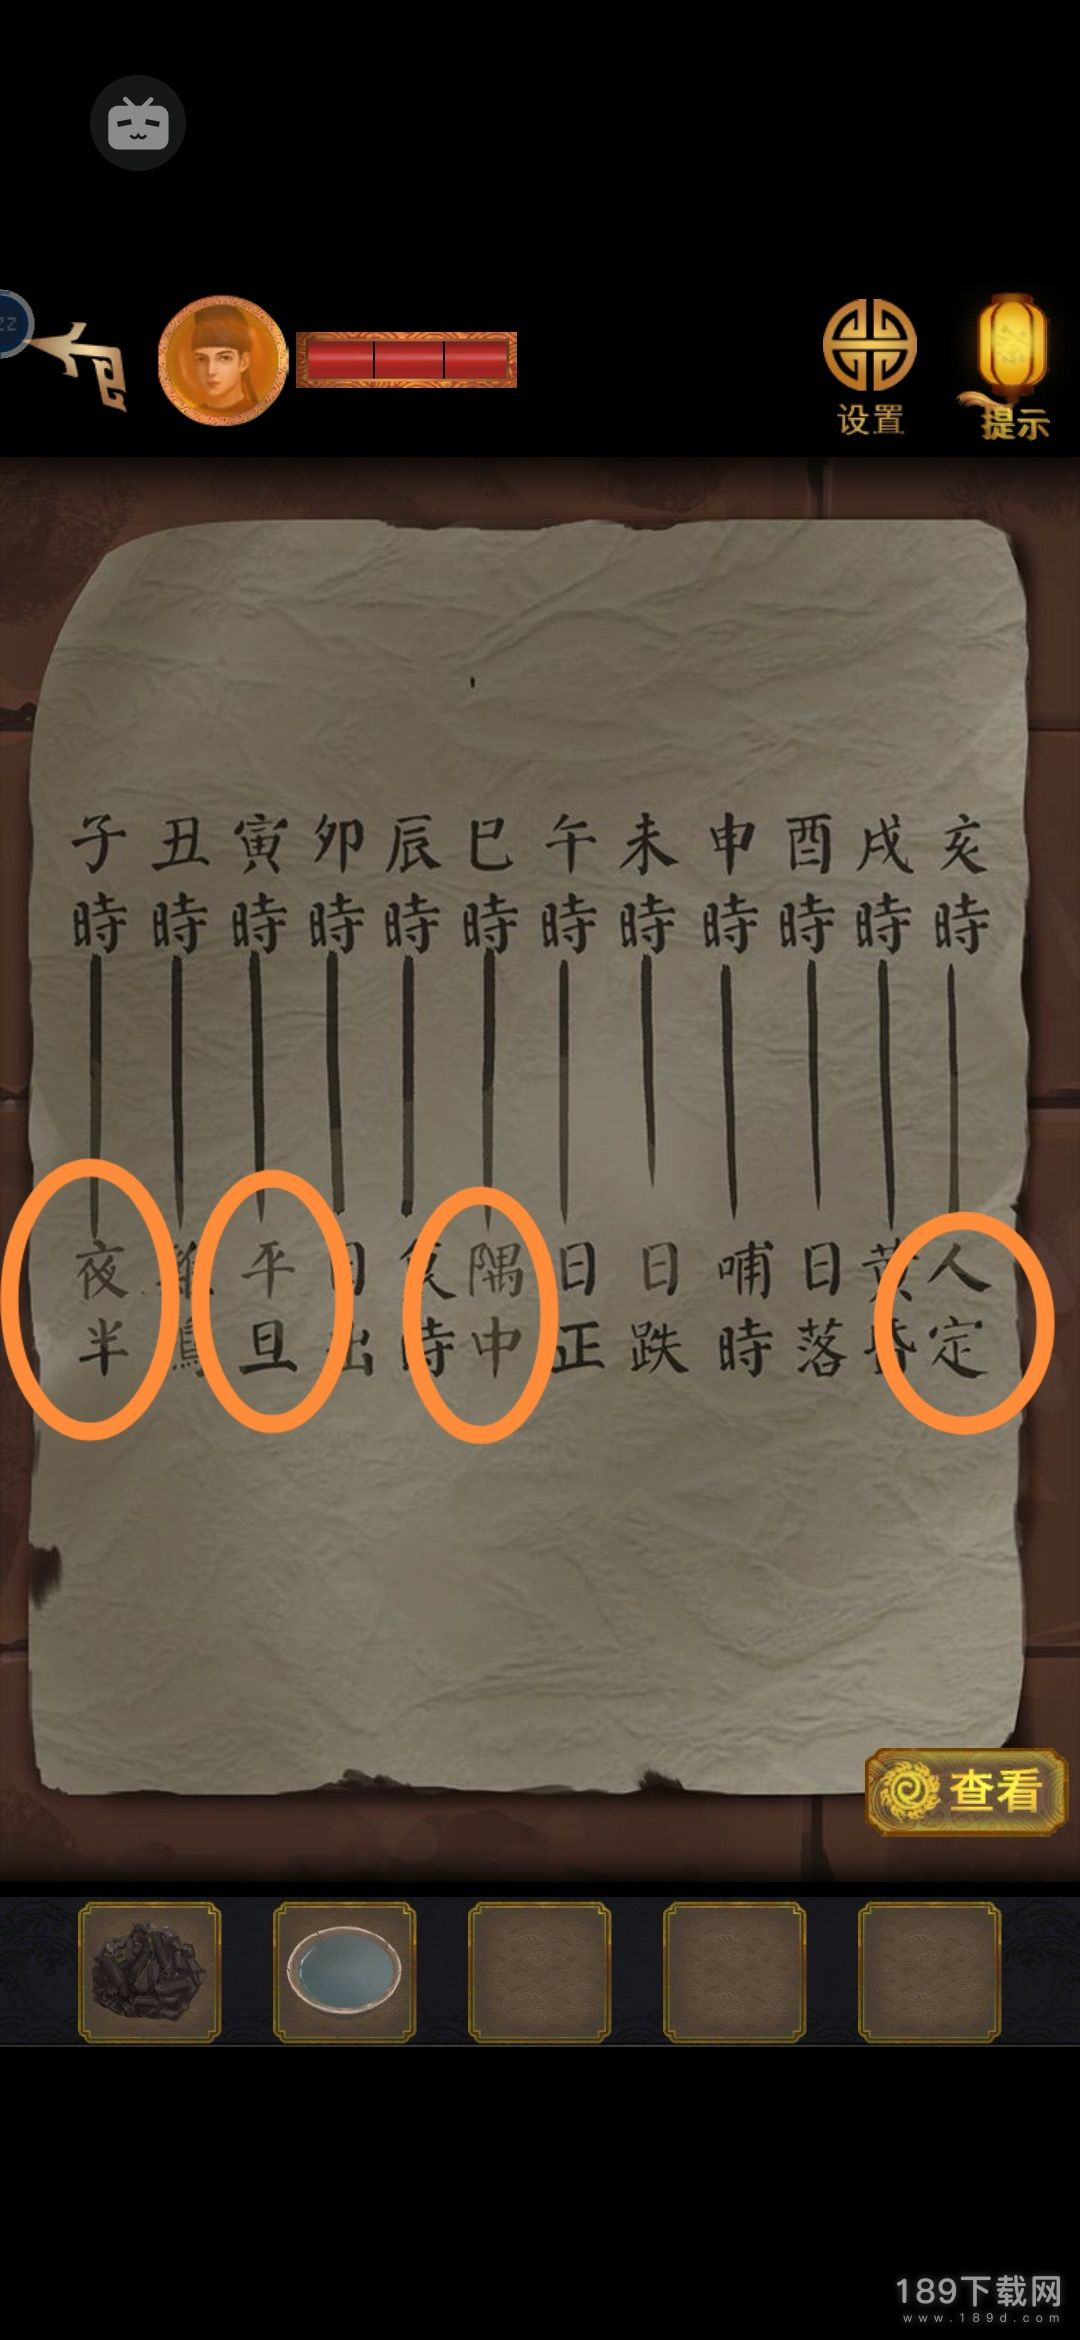 设置
提示
子 丑 寅 卯 辰 巳 午 未 申 酉 戌 亥
時 時 時 時 時 時 時 時 時 時 時 時
夜 平 日 食 隅 日 日 哺 日 黄 人
半 旦 出 時 中 正 跌 時 落 昏 定
查看
189下载网
www.189d.com